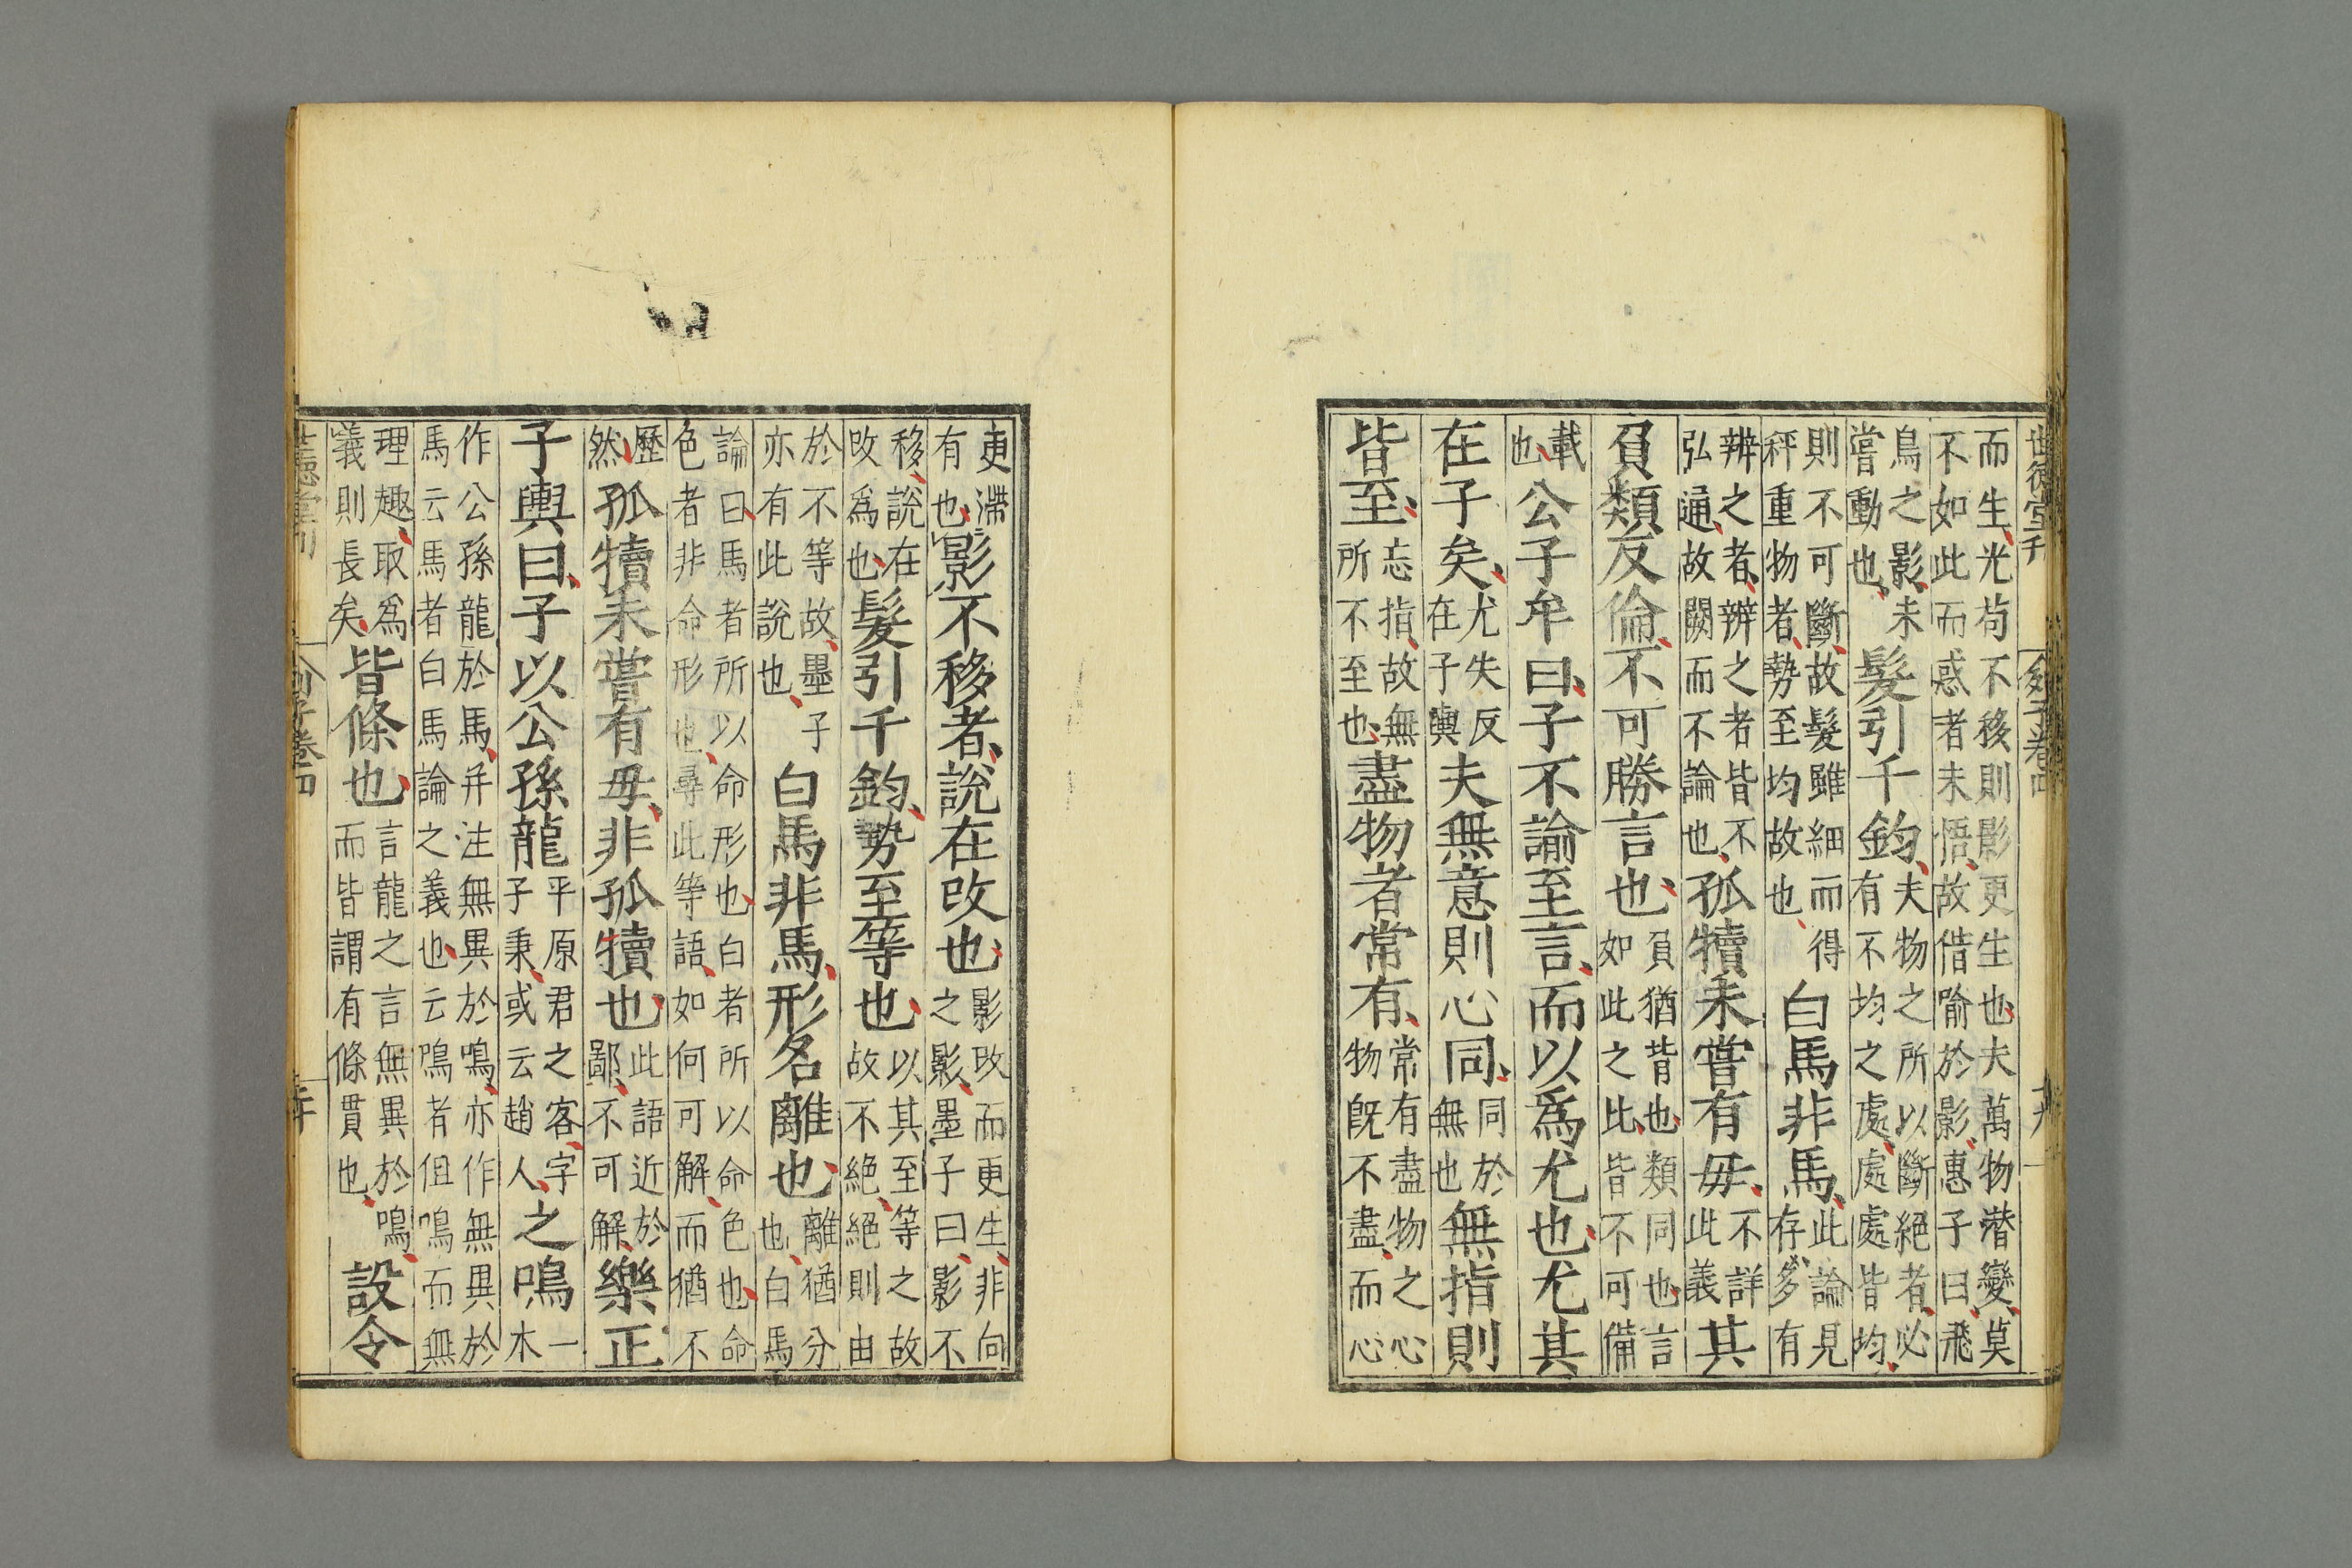 世德堂刊 列子卷四 十九
而生光苟不移則影更生也夫萬物潛變莫
不如此而惑者未悟故借喻於影惠子曰飛
鳥之影未
嘗動也
髮引千鈞
夫物之所以斷絕者必
有不均之處處處皆均
則不可斷故髮雖細而得
秤重物者勢至均故也
白馬非馬
此論見
存多有
辨之者辨之者皆不
弘通故闕而不論也
孤犢未嘗有母
不詳
此義
其
負類反倫不可勝言也
負猶背也類同也言
如此之比皆不可備
載
也
公子牟曰子不諭至言而以爲尤也尤其
在子矣
尤失反
在子輿
夫無意則心同
同於
無也
無指則
皆至
忘指故無
所不至也
盡物者常有
常有盡物之心
物旣不盡而心
更滯
有也
影不移者說在改也
影改而更生非向
之影墨子曰影不
移說在
改爲也
髮引千鈞勢至等也
以其至等之故
故不絕絕則由
於不等故墨子
亦有此說也
白馬非馬形名離也
離猶分
也白馬
論曰馬者所以命形也白者所以命色也命
色者非命形也尋此等語如何可解而猶不
歷
然
孤犢未嘗有母非孤犢也
此語近於
鄙不可解
樂正
子輿曰子以公孫龍
平原君之客字
子秉或云趙人
之鳴
一
木
作公孫龍於馬弁注無異於鳴亦作無異於
馬云馬者白馬論之義也云鳴者但鳴而無
理趣取爲
義則長矣
皆條也
言龍之言無異於鳴
而皆謂有條貫也
設令
世德堂刊 列子卷四 二十